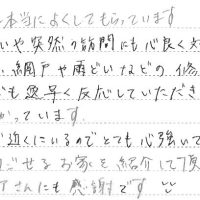 本当によくしてもらっています
いや突然の訪問にも心良く対
、網戸や雨どいなどの修
も塁早く反応していただき
がっています.
近くにいるのでとても心強いで
ごせるお家を紹介して頂
さんにも感謝です